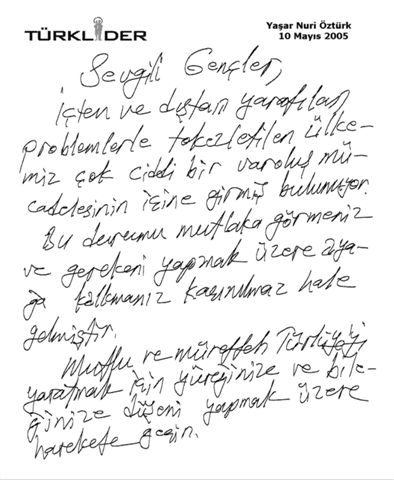 TÜRKLİDER
Yaşar Nuri Öztürk
10 Mayıs 2005
Sevgili Gençler,
İçten ve dıştan yaratılan
problemlerle tökezletilen ülke-
miz çok ciddi bir varoluş mü-
cadelesinin içine girmiş bulunuyor.
Bu durumu mutlaka görmeniz
ve gerekeni yapmak üzere aya-
ğa kalkmanız kaçınılmaz hale
gelmiştir.
Mutlu ve müreffeh Türkiye'yi
yaratmak için yüreğinize ve bile-
ğinize düşeni yapmak üzere
harekete geçin.